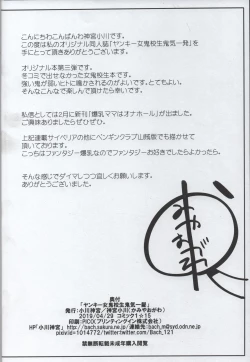 こんにちわこんばんわ神宮小川です。
この度は私のオリジナル同人誌「ヤンキー女鬼校生鬼気一髪」を
手にとって頂きありがとうございます。
オリジナル本第三弾です。
冬コミで出せなかった女鬼校生本です。
強い鬼が弱いヒトに鳴かされるのがよいです。とてもよい。
そんなこんなで楽しんで頂けたら幸いです。
私信としては2月に新刊「爆乳ママはオナホール」が出ました。
ご興味ありましたらぜひぜひ。
上記連載サイベリアの他にペンギンクラブ山賊版でも描かせて
頂いております。
こっちはファンタジー爆乳なのでファンタジーお好きでしたらよかったら。
そんな感じでダイマしつつ宜しくお願いします。
ありがとうございました。
奥付
「ヤンキー女鬼校生鬼気一髪」
発行：小川神宮／神宮小川(かみやおがわ)
2019/04/29 コミック1☆15
印刷：PICO(プリンティングイン株式会社)
HP「小川神宮」 http://bach.sakura.ne.jp/連絡先:bach_m@syd.odn.ne.jp
pixivid=1014772/twitter:twitter.com/Bach_121
禁無断転載未成年購入閲覧